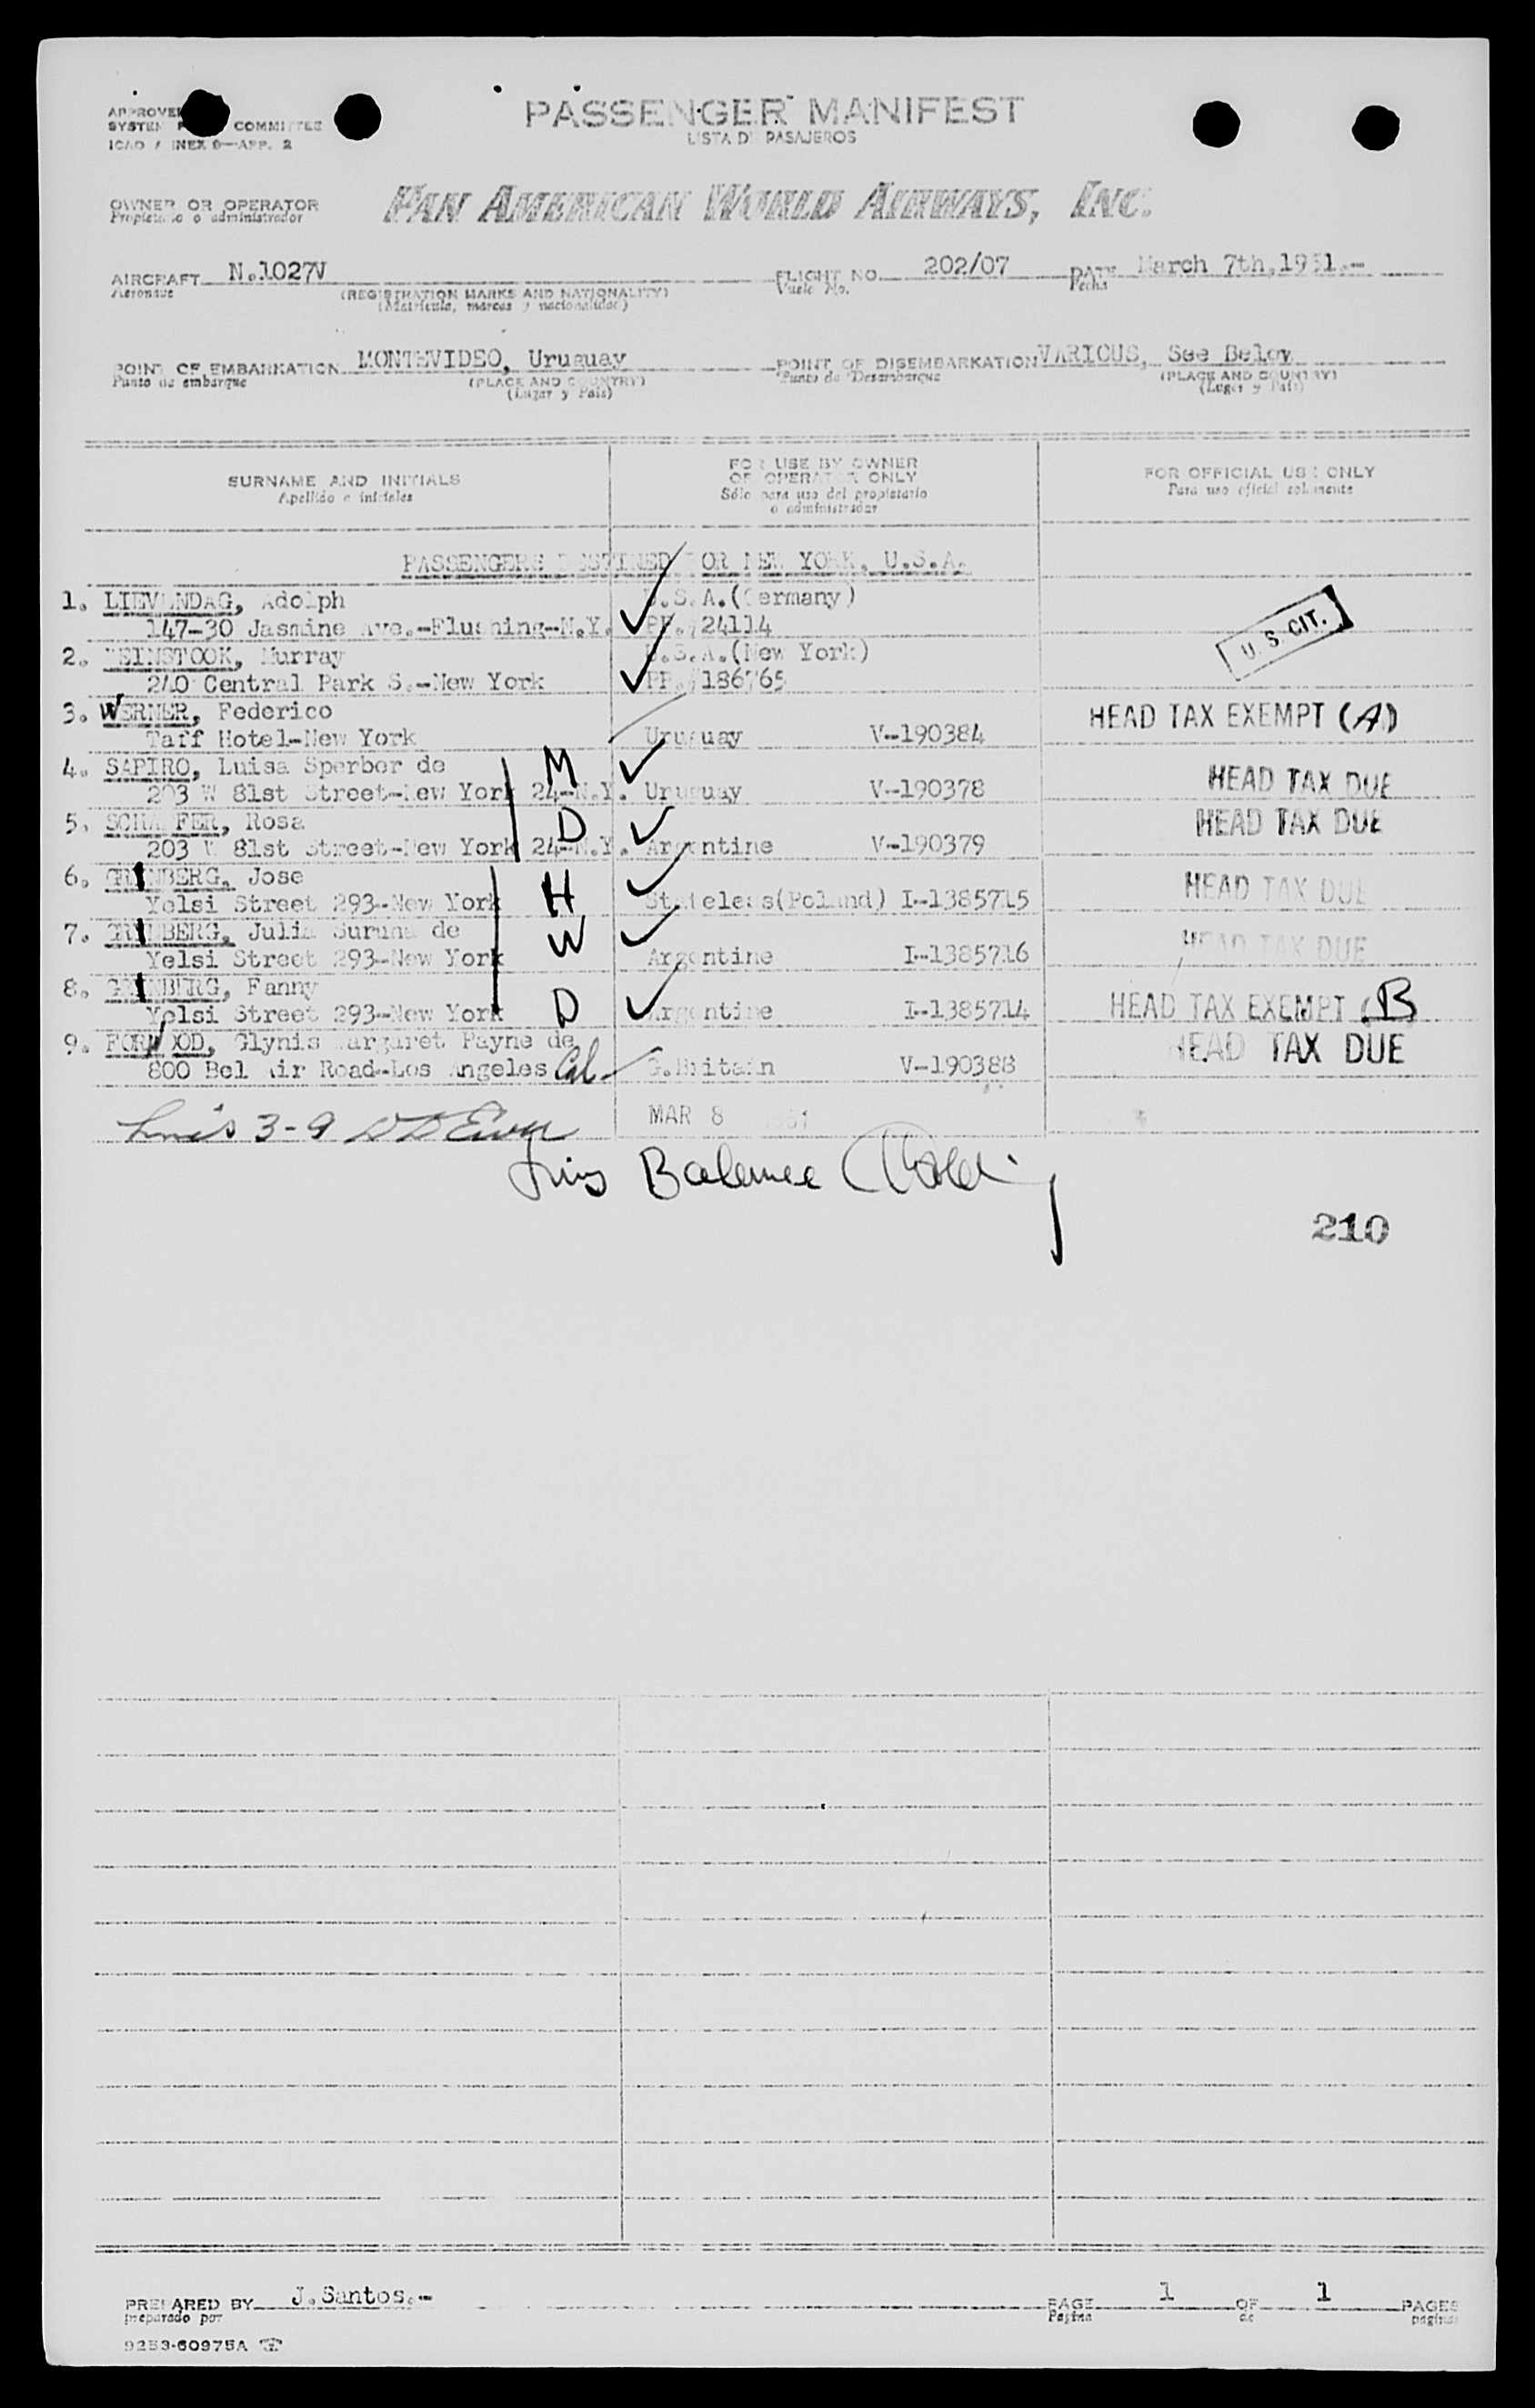 PASSENGER MANIFEST
LISTA DE PASAJEROS
APPROVED COMMITTEE
SYSTEM
ICAO ANNEX 9—APP. 2
OWNER OR OPERATOR PAN AMERICAN WORLD AIRWAYS, INC.
Propietario o administrador
AIRCRAFT N.1027V FLIGHT NO. 202/07 DATE March 7th,1951.-
Aeronave (REGISTRATION MARKS AND NATIONALITY) Vuelo No. Fecha
(Matrícula, marcas y nacionalidad)
POINT OF EMBARKATION MONTEVIDEO, Uruguay POINT OF DISEMBARKATION VARIOUS, See Below
Punto de embarque (PLACE AND COUNTRY) Punto de Desembarque (PLACE AND COUNTRY)
(Lugar y País) (Lugar y País)
SURNAME AND INITIALS FOR USE BY OWNER OR OPERATOR ONLY FOR OFFICIAL USE ONLY
Apellido e iniciales Sólo para uso del propietario o administrador Para uso oficial solamente
PASSENGERS DESTINED FOR NEW YORK, U.S.A.
1. LIEVENDAG, Adolph U.S.A.(Germany)
147-30 Jasmine Ave.-Flushing-N.Y. PP.#24114
U. S. CIT.
2. WEINSTOOK, Murray U.S.A.(New York)
240 Central Park S.-New York PP.#186765
3. WERNER, Federico HEAD TAX EXEMPT (A)
Taff Hotel-New York Uruguay V-190384
4. SAPIRO, Luisa Sperber de M HEAD TAX DUE
203 W 81st Street-New York 24-N.Y. Uruguay V-190378
5. SCHAFFER, Rosa D HEAD TAX DUE
203 W 81st Street-New York 24-N.Y. Argentine V-190379
6. GRINBERG, Jose H HEAD TAX DUE
Yelsi Street 293-New York Stateless(Poland) I-1385715
7. GRINBERG, Julia Suruna de W HEAD TAX DUE
Yelsi Street 293-New York Argentine I-1385716
8. GRINBERG, Fanny
Yelsi Street 293-New York D Argentine I-1385714 HEAD TAX EXEMPT (B
9. FORWOOD, Glynis Margaret Payne de HEAD TAX DUE
800 Bel Air Road-Los Angeles Cal- G.Britain V-190388
3-9 MAR 8 1951
Balance
210
PREPARED BY J.Santos.- PAGE 1 OF 1 PAGES
preparado por Página de páginas
9253-60975A